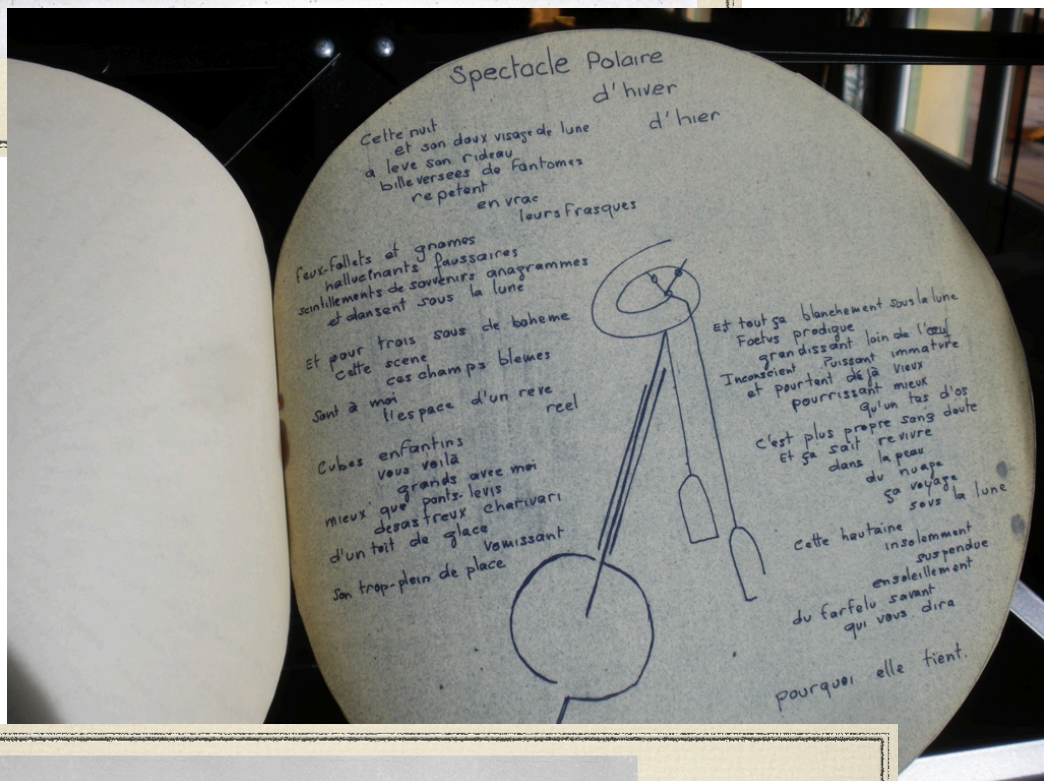 Spectacle Polaire
d'hiver
d'hier
Cette nuit
et son doux visage de lune
a leve son rideau
billeversees de fantomes
repetent
en vrac
leurs frasques
feux-follets et gnomes
hallucinants faussaires
scintillements de souvenirs anagrammes
et dansent sous la lune
Et pour trois sous de boheme
cette scene
ces champs blemes
sont à moi
l'espace d'un reve
reel
Cubes enfantins
vous voilà
grands avec moi
mieux que ponts-levis
desastreux charivari
d'un toit de glace
vomissant
son trop-plein de place
Et tout ça blanchement sous la lune
Foetus prodigue
grandissant loin de l'œuf
Inconscient Puissant immature
et pourtant déjà vieux
pourrissant mieux
qu'un tas d'os
C'est plus propre sans doute
Et ça sait revivre
dans la peau
du nuage
ça voyage
sous la lune
Cette hautaine
insolemment
suspendue
ensoleillement
du farfelu savant
qui vous dira
pourquoi elle tient.